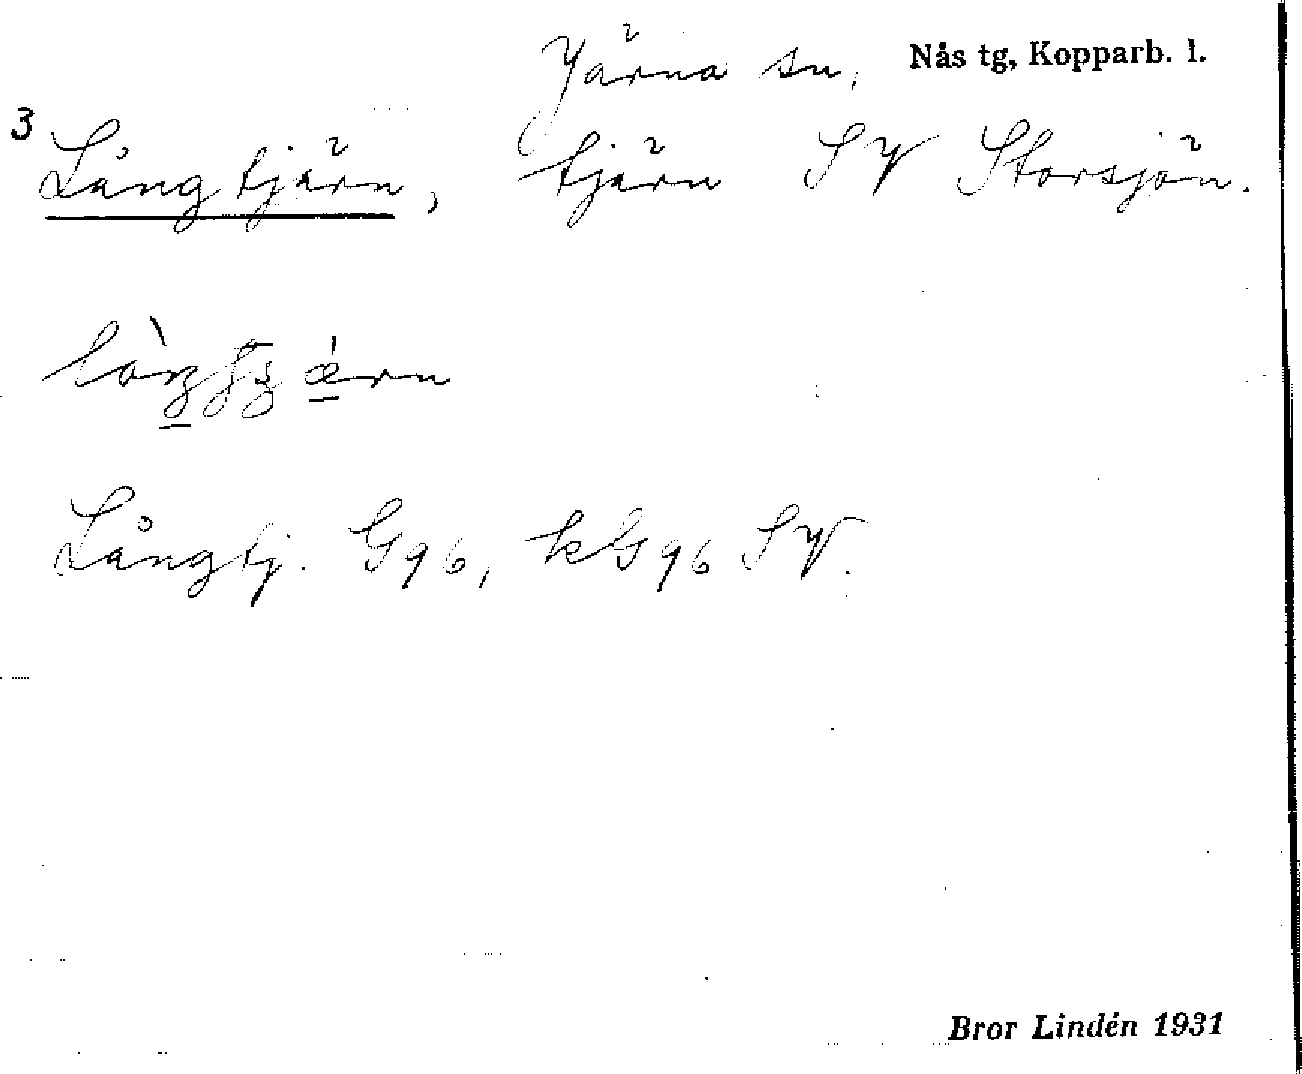 Järna sn, Nås tg, Kopparb. l.
3 Långtjärn, tjärn SV Storsjön.
Långtj. G96, kG96 SV.
Bror Lindén 1931